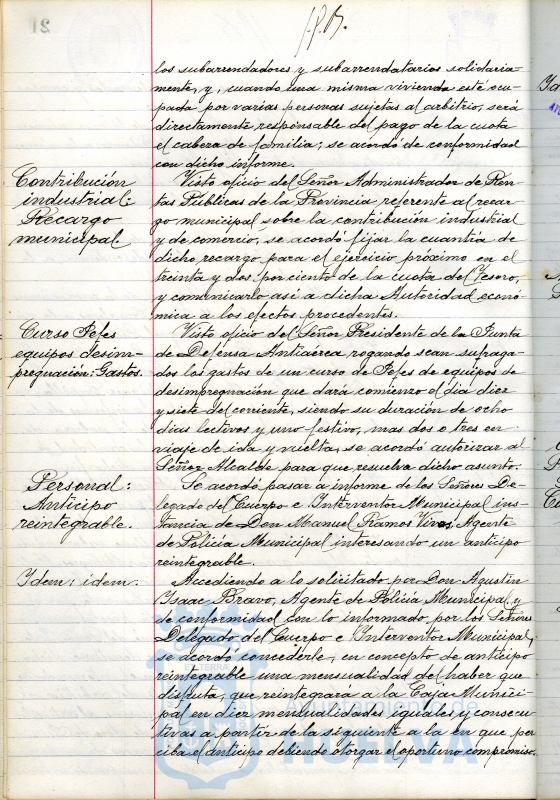 los subarrendadores y subarrendatarios solidaria-
mente, y, cuando una misma vivienda esté ocu-
pada por varias personas sujetas al arbitrio, será
directamente responsable del pago de la cuota
el cabeza de familia; se acordó de conformidad
con dicho informe.
Contribución
industrial:
Recargo
municipal.
Visto oficio del Señor Administrador de Ren-
tas Públicas de la Provincia referente al recar-
go municipal sobre la contribución industrial
y de comercio, se acordó fijar la cuantía de
dicho recargo para el ejercicio próximo en el
treinta y dos por ciento de la cuota del Tesoro,
y comunicarlo así a dicha Autoridad econó-
mica a los efectos procedentes.
Curso Jefes
equipos desim-
pregnación: Gastos.
Visto oficio del Señor Presidente de la Junta
de Defensa Antiaérea rogando sean sufraga-
dos los gastos de un curso de Jefes de equipos de
desimpregnación que dará comienzo el día diez
y siete del corriente, siendo su duración de ocho
días lectivos y uno festivo, mas dos o tres en
viaje de ida y vuelta, se acordó autorizar al
Señor Alcalde para que resuelva dicho asunto.
Personal:
Anticipo
reintegrable.
Se acordó pasar a informe de los Señores De-
legado del Cuerpo e Interventor Municipal ins-
tancia de Don Manuel Ramos Vivas, Agente
de Policía Municipal interesando un anticipo
reintegrable.
Idem: idem.
Accediendo a lo solicitado por Don Agustín
Isaac Bravo, Agente de Policía Municipal y
de conformidad con lo informado por los Señores
Delegado del Cuerpo e Interventor Municipal,
se acordó concederle, en concepto de anticipo
reintegrable una mensualidad del haber que
disfruta, que reintegrará a la Caja Munici-
pal en diez mensualidades iguales y consecu-
tivas a partir de la siguiente a la en que per
ciba el anticipo debiendo otorgar el oportuno compromiso.
Ayuntamiento de